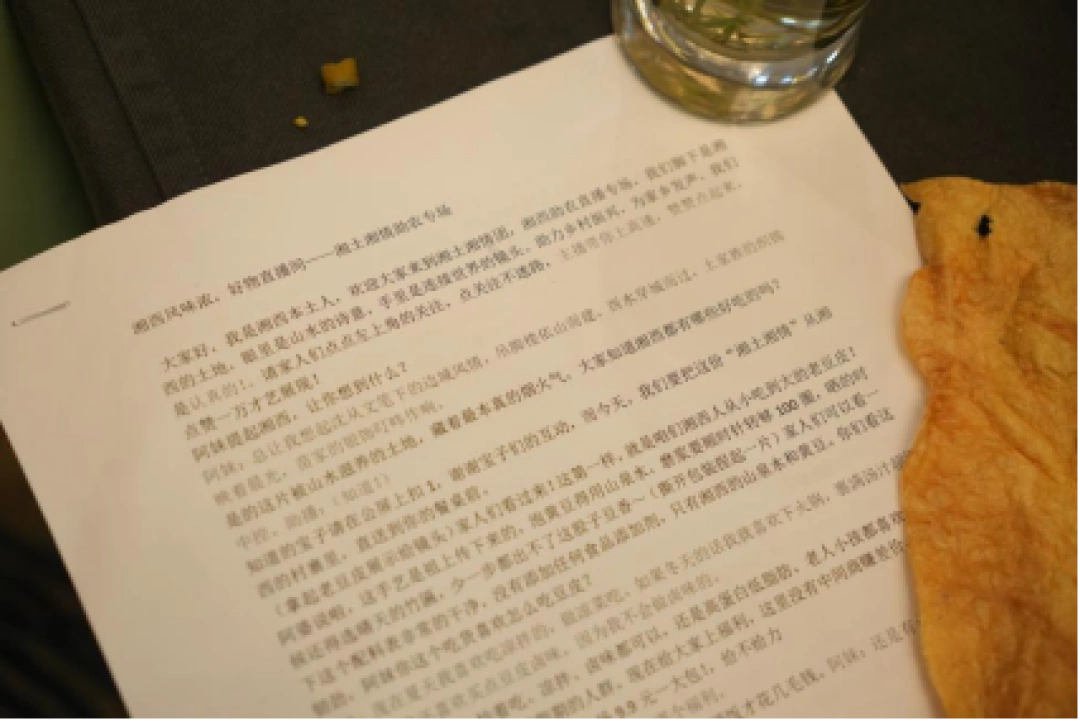 湘西风味浓，好物直播间——湘土湘情助农专场
大家好，我是湘西本土人，欢迎大家来到湘土湘情团，湘西助农直播专场，我们脚下是湘
西的土地，眼里是山水的诗意，手里是连接世界的镜头，助力乡村振兴，为家乡发声，我们
是认真的！，请家人们点点左上角的关注，点关注不迷路，主播带你上高速，赞赞点起来，
点赞一万才艺展现！
阿妹提起湘西，让你想到什么？
阿妹：总让我想起沈从文笔下的边城风情，吊脚楼依山而建，酉水穿城而过，土家族的织锦
映着晨光，苗家的银饰叮咚作响。
是的这片被山水滋养的土地，藏着最本真的烟火气，大家知道湘西都有哪些好吃的吗？
中控，助播：（知道！）
知道的宝子请在公屏上扣 1，谢谢宝子们的互动，而今天，我们要把这份“湘土湘情”从湘
西的村寨里，直送到你的餐桌前。
（拿起老豆皮展示给镜头）家人们看过来！这第一样，就是咱们湘西人从小吃到大的老豆皮！
阿婆说啦，这手艺是祖上传下来的，泡黄豆得用山泉水，磨浆要顺时针转够 100 圈，晒的时
候还得选晴天的竹匾，少一步都出不了这股子豆香～（撕开包装捏起一片）家人们可以看一
下这个配料表非常的干净，没有添加任何食品添加剂，只有湘西的山泉水和黄豆，你们看这
阿妹你这个吃货喜欢怎么吃豆皮？
现在夏天我喜欢吃凉拌的，做凉菜吃，如果冬天的话我就喜欢下火锅，裹满汤汁
喜欢买点豆皮卤味，因为我不会做卤味的。
吃，凉拌，卤味都可以，还是高蛋白低脂肪，老人小孩都喜欢
期的人群，现在给大家上福利，这里没有中间商赚差价
9.9 元一大包！，给不给力
个福利，
才花几毛钱，阿妹：还是